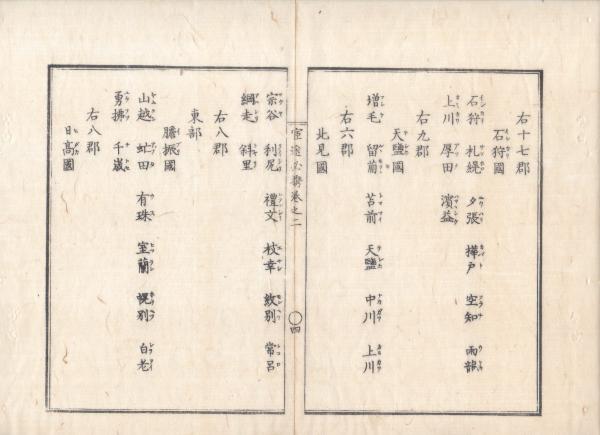 右十七郡
石狩國
石狩 札幌 夕張 樺戸 空知 雨龍
上川 厚田 濱益
右九郡
天鹽國
増毛 留萠 苫前 天鹽 中川 上川
右六郡
北見國
宦途必携巻之二
四
宗谷 利尻 禮文 枝幸 紋別 常呂
綱走 斜里
右八郡
東部
膽振國
山越 虻田 有珠 室蘭 幌別 白老
勇拂 千歳
右八郡
日高國